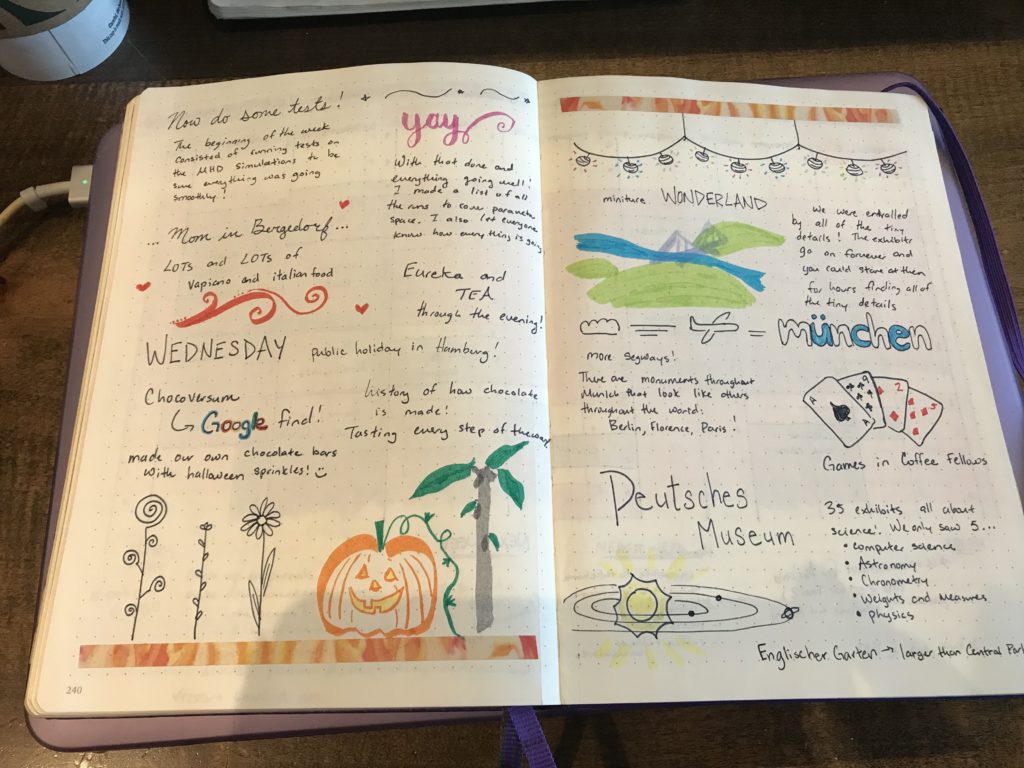 Now do some tests!
The beginning of the week
consisted of running tests on
the MHD simulations to be
sure everything was going
smoothly!
... Mom in Bergedorf...
LOTS and LOTS of
Vapiano and italian food
WEDNESDAY public holiday in Hamburg!
Chocoversum
Google find!
made our own chocolate bars
with halloween sprinkles!
240
yay
With that done and
everything going well!
I made a list of all
the runs to cover parameter
space. I also let everyone
know how everything is going
Eureka and
TEA
through the evening!
history of how chocolate
is made!
Tasting every step of the way
miniture WONDERLAND
We were entralled
by all of the tiny
details! The exhibits
go on forever and
you could stare at them
for hours finding all of
the tiny details
= münchen
more segways!
There are monuments throughout
Munich that look like others
throughout the world:
Berlin, Florence, Paris!
A
9
A
2
5
Games in Coffee Fellows
Deutsches
Museum
35 exhibits all about
science! We only saw 5...
• computer science
• Astronomy
• Chronometry
• Weights and Measures
• physics
Englischer Garten → larger than Central Park